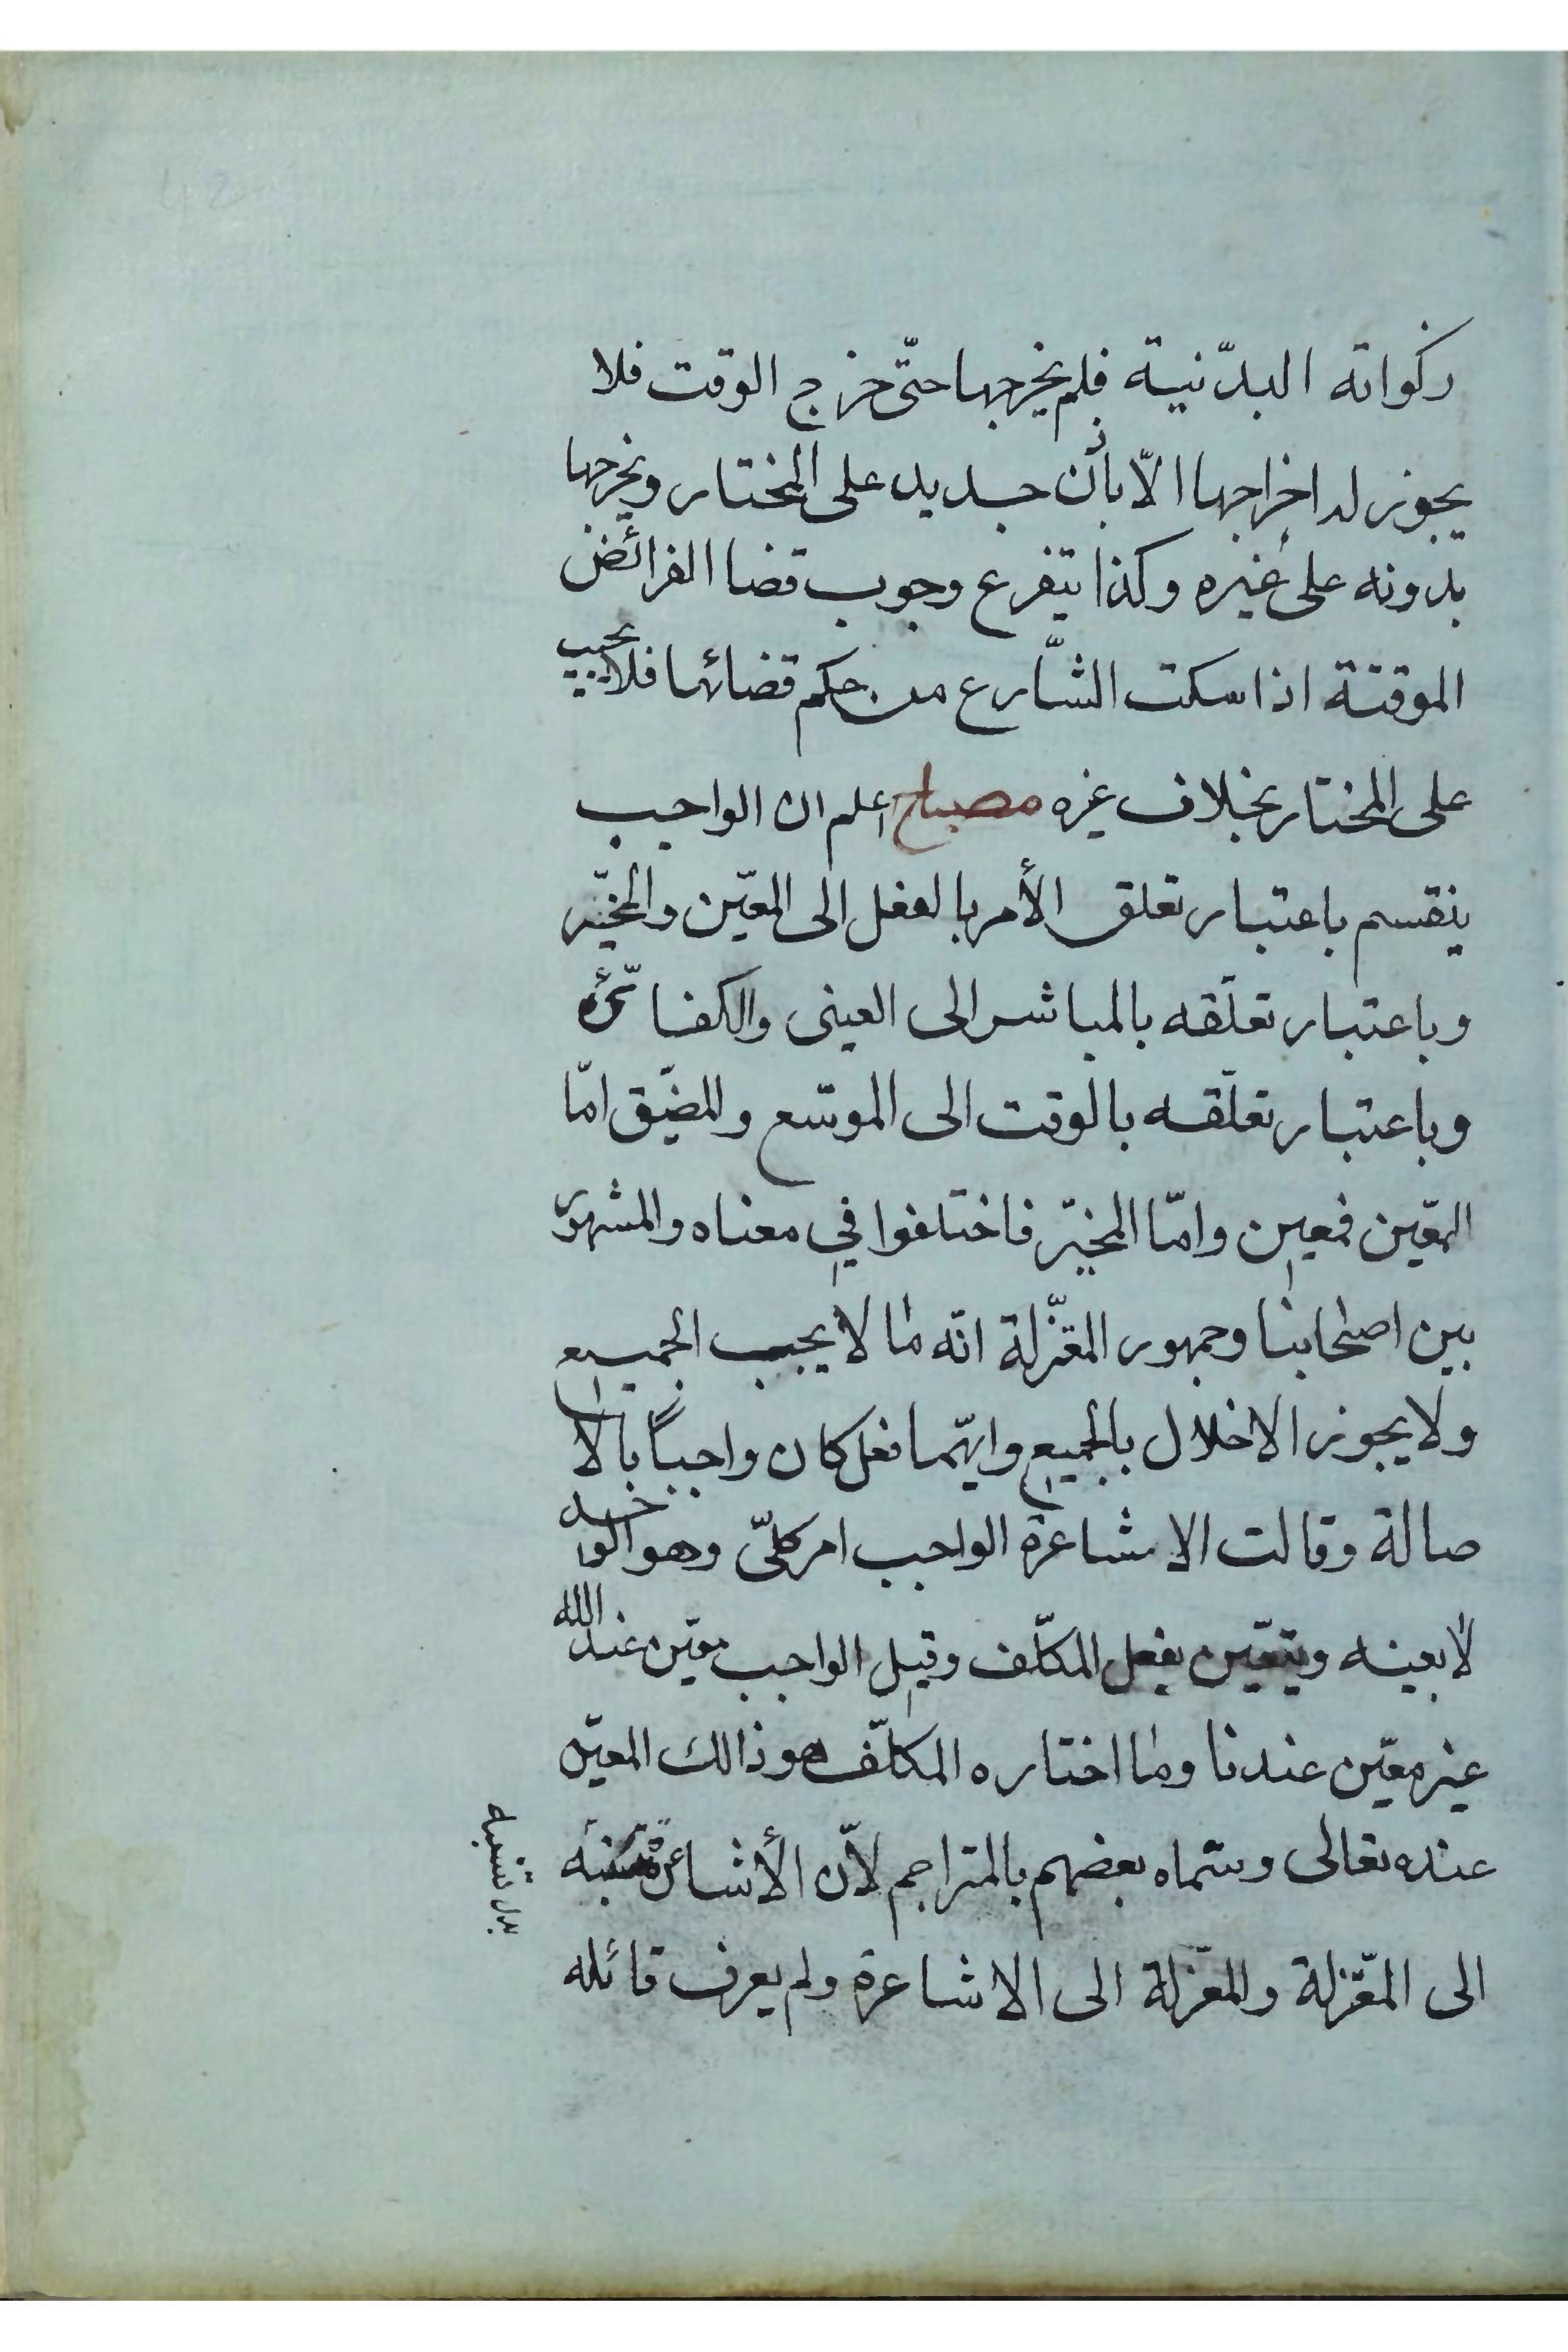 زكواته البدّنية فلم يخرجها حتّى خرج الوقت فلا
يجوز له اخراجها الّا بأذن جديد على المختار ويخرجها
بدونه على غيره وكذا يتفرع وجوب قضا الفرائض
الموقتة اذا سكت الشّارع من حكم قضائها فلا يجب
على المختار بخلاف غيره مصباح اعلم ان الواجب
ينقسم باعتبار تعلق الأمر بالفعل الى المعيّن والمخيّر
وباعتبار تعلّقه بالمباشر الى العينى والكفائى
وباعتبار تعلّقه بالوقت الى الموسّع والمضيّق امّا
المعيّن فمعين وامّا المخيّر فاختلفوا في معناه والمشهور
بين اصحابنا وجمهور المعتزّلة انّه ما لا يجب الجميع
ولا يجوز الاخلال بالجميع وايّهما فعل كان واجباً بالا
صالة وقالت الاشاعرة الواجب امر كلىّ وهو الواحد
لا بعينه ويتعيّن بفعل المكلّف وقيل الواجب معيّن عند الله
غير معيّن عندنا وما اختاره المكلّف هو ذالك المعيّن
عنده تعالى وسمّاه بعضهم بالمتراجم لأنّ الأشاعرة تنسبه
الى المعتزلة والمعتزلة الى الاشاعرة ولم يعرف قائله